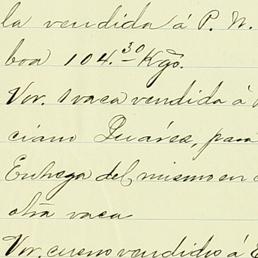 la vendida á P. N.
boa 104.30 Kgs.
Por. 1 vaca vendida á
ciano Juárez, para
Entrega del mismo en
otra vaca
Por. cueno vendido á E